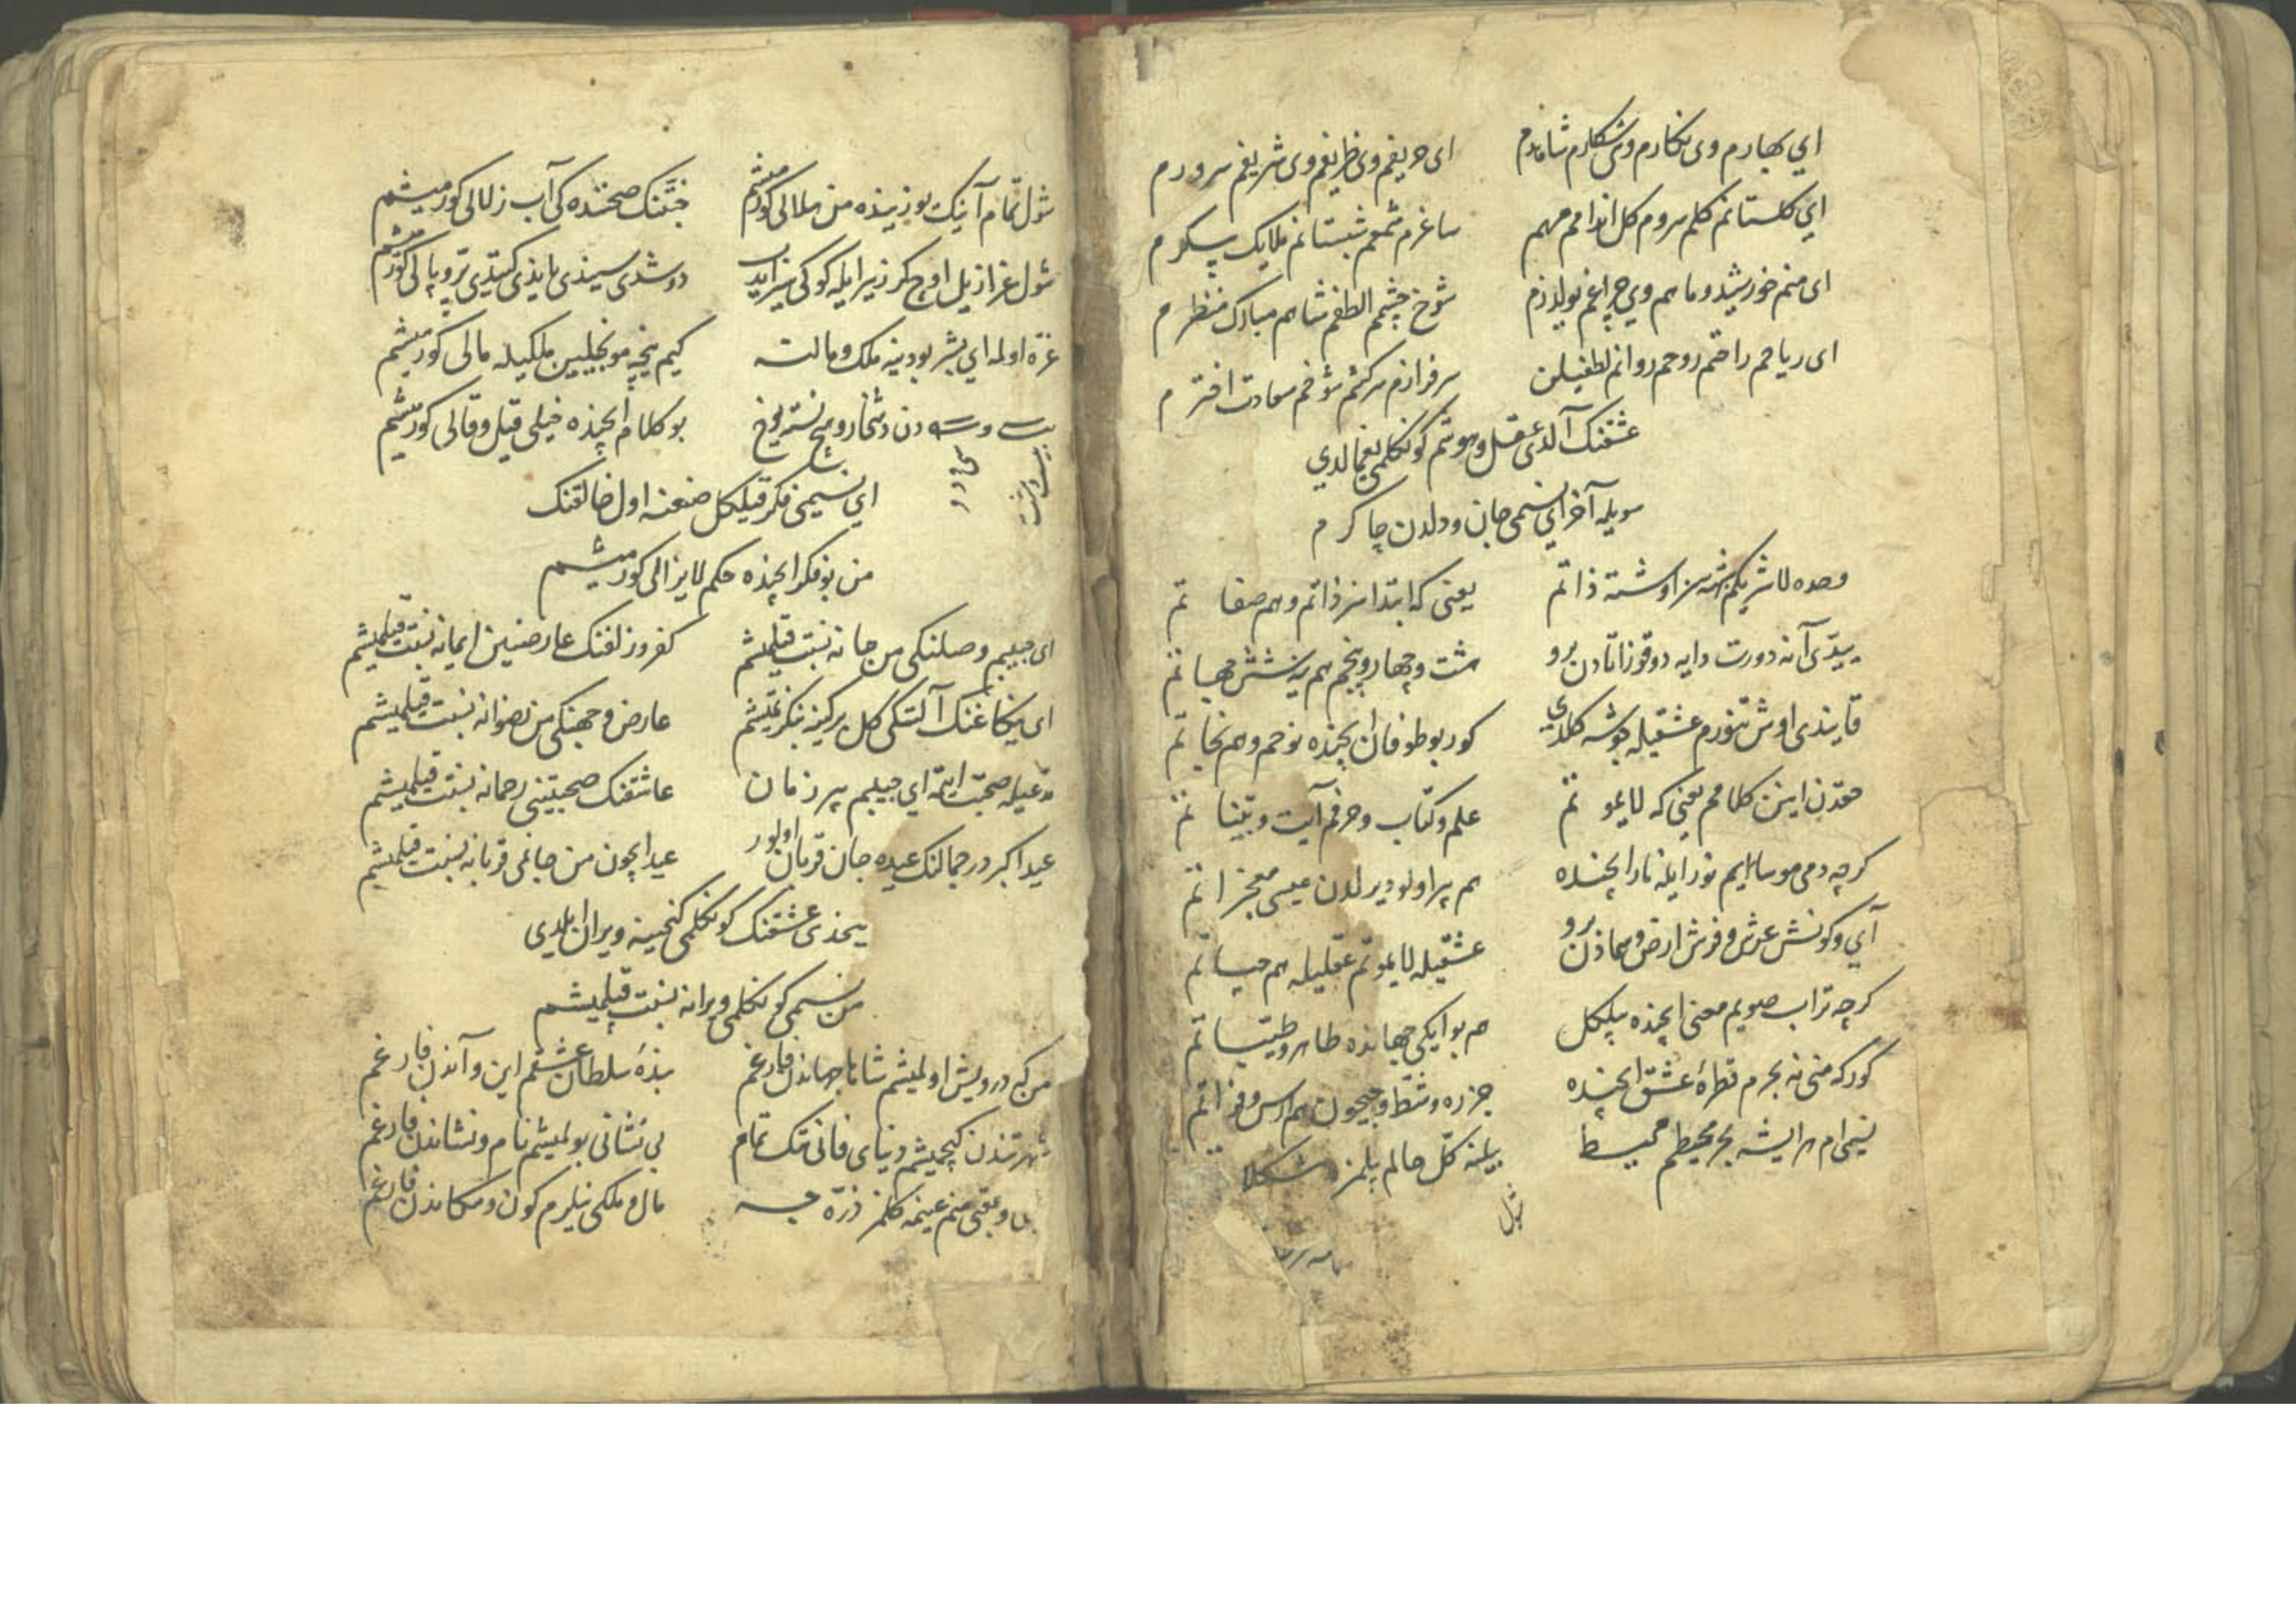 اي بهارم وی نکارم وی شکارم شاهدم ای حریفم وی ظریفم وی شریفم سرورم
اي کلستانم کلم سروم کل اندامم مهم ساغرم شمعم شبستانم ملایک پیکرم
ای منم خورشید و ماهم وي چراغم یولدزم شوخ چشمم الطفم شاهم مبارک منظرم
ای ریاحم راحتم روحم روانم لطفیلن سرفرازم سرکشم شوخم سعادت اخترم
عشقنک آلدی عقل و هوشم کونکلمی یغمالدي
سویله آخر اي نسیمی جان و دلدن چاکرم
وحده لاشریکم اوشته ذاتم یعنی که ابتداسز ذاتم و هم صفاتم
یيدّی آنه دورت دایه دوقوز آتادن برو هشت و چهار و پنجم هم یه شش جهاتم
قایندی اوش تنورم عشقیله جوشه کلدي کور بو طوفان ایچنده نوحم و هم نجاتم
حقدن اینن کلامم یعنی که لایموتم علم و کتاب و حرفم آیت و بیّناتم
کرچه دمی موسایم نور ایله نار ایچنده هم پر اولو دیرلدن عیسی معجزاتم
آي و کونش عرش و فرش ارض و سمادن برو عشقیله لایموتم عقلیله هم حیاتم
کرچه تراب صویم معنی ایچنده بیلکل هم بو ایکی جهانده طاهر و طیّباتم
کور که منی نه بحرم قطرهٔ عشق ایچنده جزره و شط و جیحون هم ارس و فراتم
نسیمی‌ام همیشه بحر محیطم محیط بیلنه کلّ حالم بیلمزه مشکلاتم
شول
شول تمام آینک یوزینده من هلالی کورمیشم جنّتنک صحننده کی آب زلالی کورمیشم
شول عزازیل اوج کز زیر ایله کوکی دوشدی سیندی بایندی کیتدی پرّ و بالی کورمیشم
غرّه اولمه اي بشر بو دنیه ملک و مالنه کیم نیچه مونجیلیین ملکیله مالی کورمیشم
بو کلام ایچنده خیلی قیل و قالی کورمیشم
اي نسیمی فکر قیلکل صنعنه اول خالقنک
من بو فکر ایچنده حکم لایزالی کورمیشم
ای حبیبم وصلنکی من جانه نسبت قیلمیشم کفر و زلفنک عارضنین ایمانه نسبت قیلمیشم
عارض و وجهنکی من رضوانه نسبت قیلمیشم
مدّعیله صحبت ایتمه اي حبیبم بر زمان عاشقنک صحبتینی رحمانه نسبت قیلمیشم
عید اکبر در جمالنک عیده جان قربان اولور عید ایچون من جانمی قربانه نسبت قیلمیشم
عشقنک کونکلمی کنجینه ویران ایلدی
من نسیمی کونکلمی ویرانه نسبت قیلمیشم
من که درویش اولمیشم شاها جهاندن فارغم بندهٔ سلطان عشقم این و آندن فارغم
شهرتندن کیچمیشم دنیای فانینک تمام بی نشانی بولمیشم نام و نشاندن فارغم
عقبی منم عینمه کلمز ذرّه جه مال و ملکی نیلرم کون و مکاندن فارغم